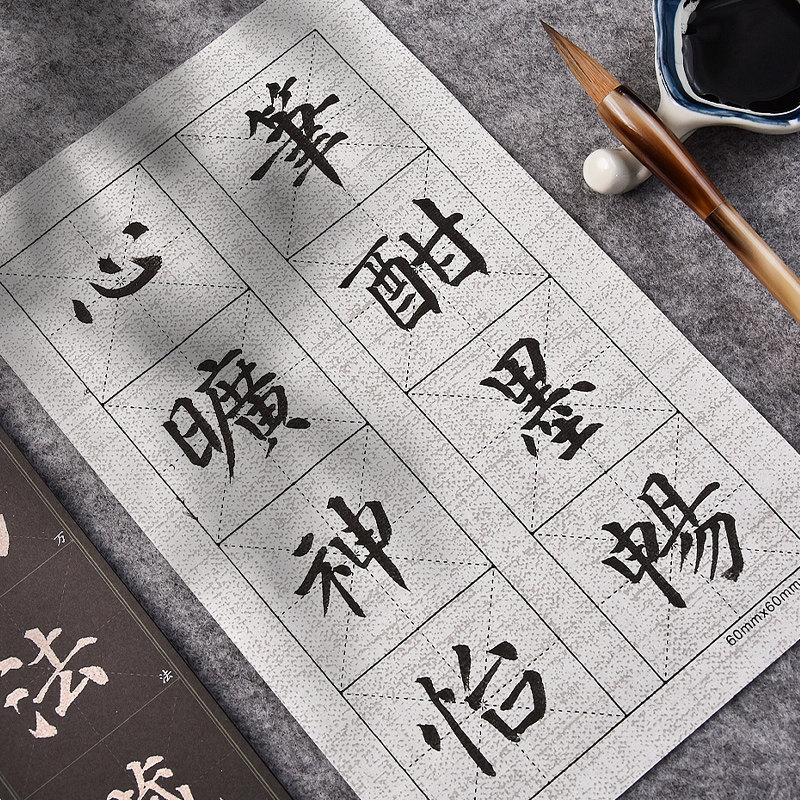 筆酣墨暢
心曠神怡
60mmx60mm
万
法
法